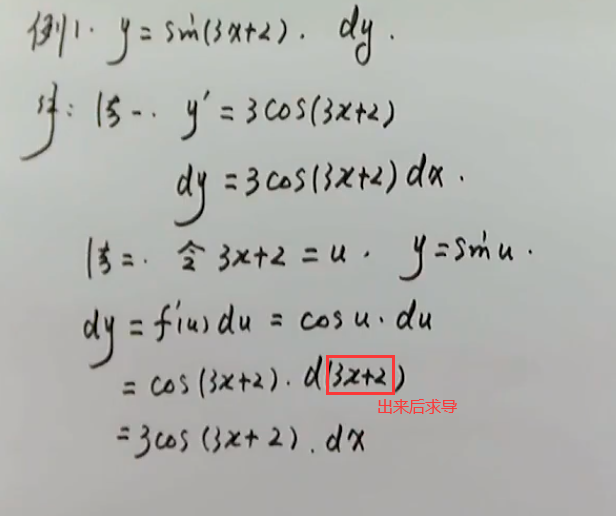 例1. y = sin(3x+2). dy.
解: 法一. y' = 3cos(3x+2)
dy = 3cos(3x+2) dx.
法二. 令 3x+2 = u. y = sin u.
dy = f'(u) du = cos u · du
= cos(3x+2) · d(3x+2)
出来后求导
= 3cos(3x+2) · dx